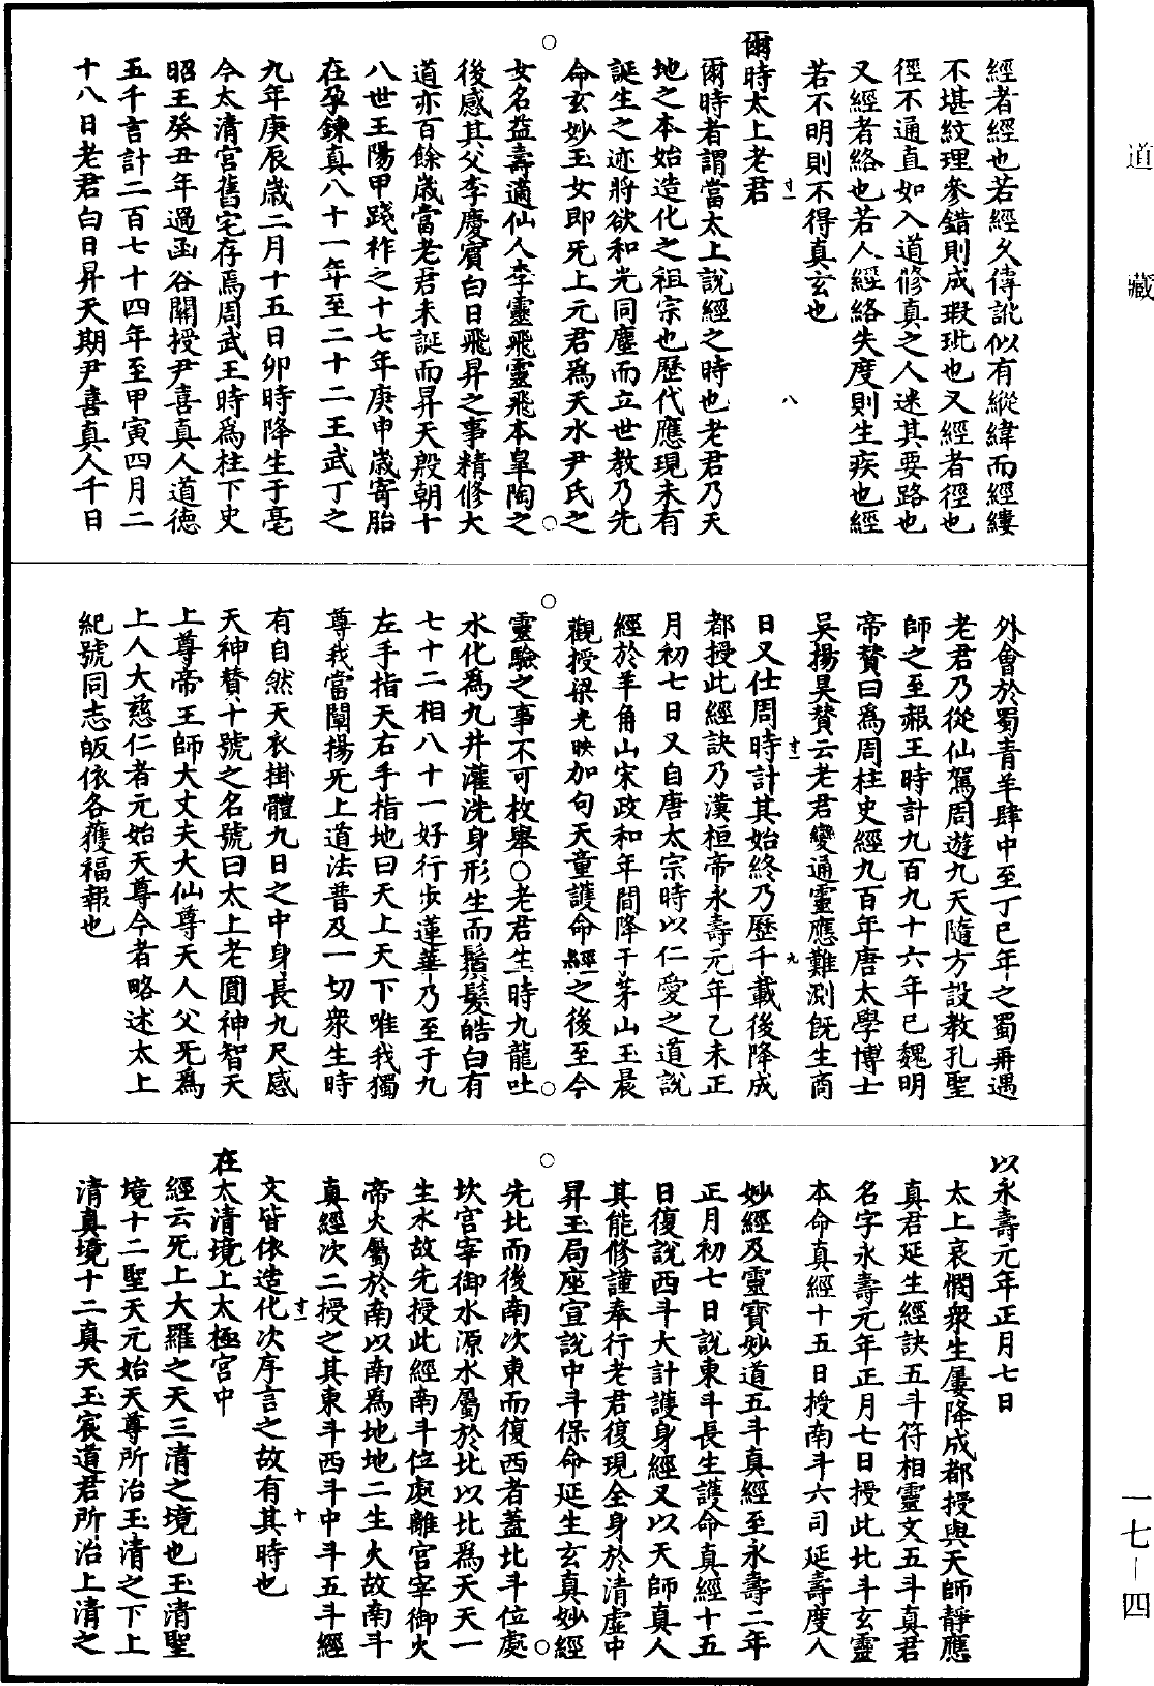 道藏
經者經也若經久傳訛似有縱緯而經縷
不堪紋理參錯則成瑕玼也又經者徑也
徑不通直如入道修真之人迷其要路也
又經者絡也若人經絡失度則生疾也經
若不明則不得真玄也
寸一 八
爾時太上老君
爾時者謂當太上說經之時也老君乃天
地之本始造化之祖宗也歷代應現未有
誕生之迹將欲和光同塵而立世教乃先
命玄妙玉女即旡上元君爲天水尹氏之
女名益壽適仙人李靈飛靈飛本皐陶之
後感其父李慶賓白日飛昇之事精修大
道亦百餘歲當老君未誕而昇天殷朝十
八世王陽甲踐祚之十七年庚申歲寄胎
在孕鍊真八十一年至二十二王武丁之
九年庚辰歲二月十五日卯時降生于亳
今太清宮舊宅存焉周武王時爲柱下史
昭王癸丑年過函谷關授尹喜真人道德
五千言計二百七十四年至甲寅四月二
十八日老君白日昇天期尹喜真人千日
外會於蜀青羊肆中至丁巳年之蜀再遇
老君乃從仙駕周遊九天隨方設教孔聖
師之至赧王時計九百九十六年已魏明
帝贊曰爲周柱史經九百年唐太學博士
吳揚昊贊云老君變通靈應難測旣生商
寸一 九
日又仕周時計其始終乃歷千載後降成
都授此經訣乃漢桓帝永壽元年乙未正
月初七日又自唐太宗時以仁愛之道說
經於羊角山宋政和年間降于茅山玉晨
觀授梁光映加句天童護命經之後至今
靈驗之事不可枚舉○老君生時九龍吐
水化爲九井灌洗身形生而鬚髮皓白有
七十二相八十一好行步蓮華乃至于九
左手指天右手指地曰天上天下唯我獨
尊我當闡揚旡上道法普及一切衆生時
有自然天衣掛體九日之中身長九尺感
天神贊十號之名號曰太上老圓神智天
上尊帝王師大丈夫大仙尊天人父旡爲
上人大慈仁者元始天尊今者略述太上
紀號同志皈依各獲福報也
以永壽元年正月七日
太上哀憫衆生屢降成都授與天師靜應
真君延生經訣五斗符相靈文五斗真君
名字永壽元年正月七日授此北斗玄靈
本命真經十五日授南斗六司延壽度人
妙經及靈寶妙道五斗真經至永壽二年
正月初七日說東斗長生護命真經十五
日復說西斗大計護身經又以天師真人
其能修謹奉行老君復現全身於清虛中
昇玉局座宣說中斗保命延生玄真妙經
先北而後南次東而復西者蓋北斗位處
坎宮宰御水源水屬於北以北爲天天一
生水故先授此經南斗位處離宮宰御火
帝火屬於南以南爲地地二生火故南斗
真經次二授之其東斗西斗中斗五斗經
寸一 十
文皆依造化次序言之故有其時也
在太清境上太極宮中
經云旡上大羅之天三清之境也玉清聖
境十二聖天元始天尊所治玉清之下上
清真境十二真天玉宸道君所治上清之
一七－四